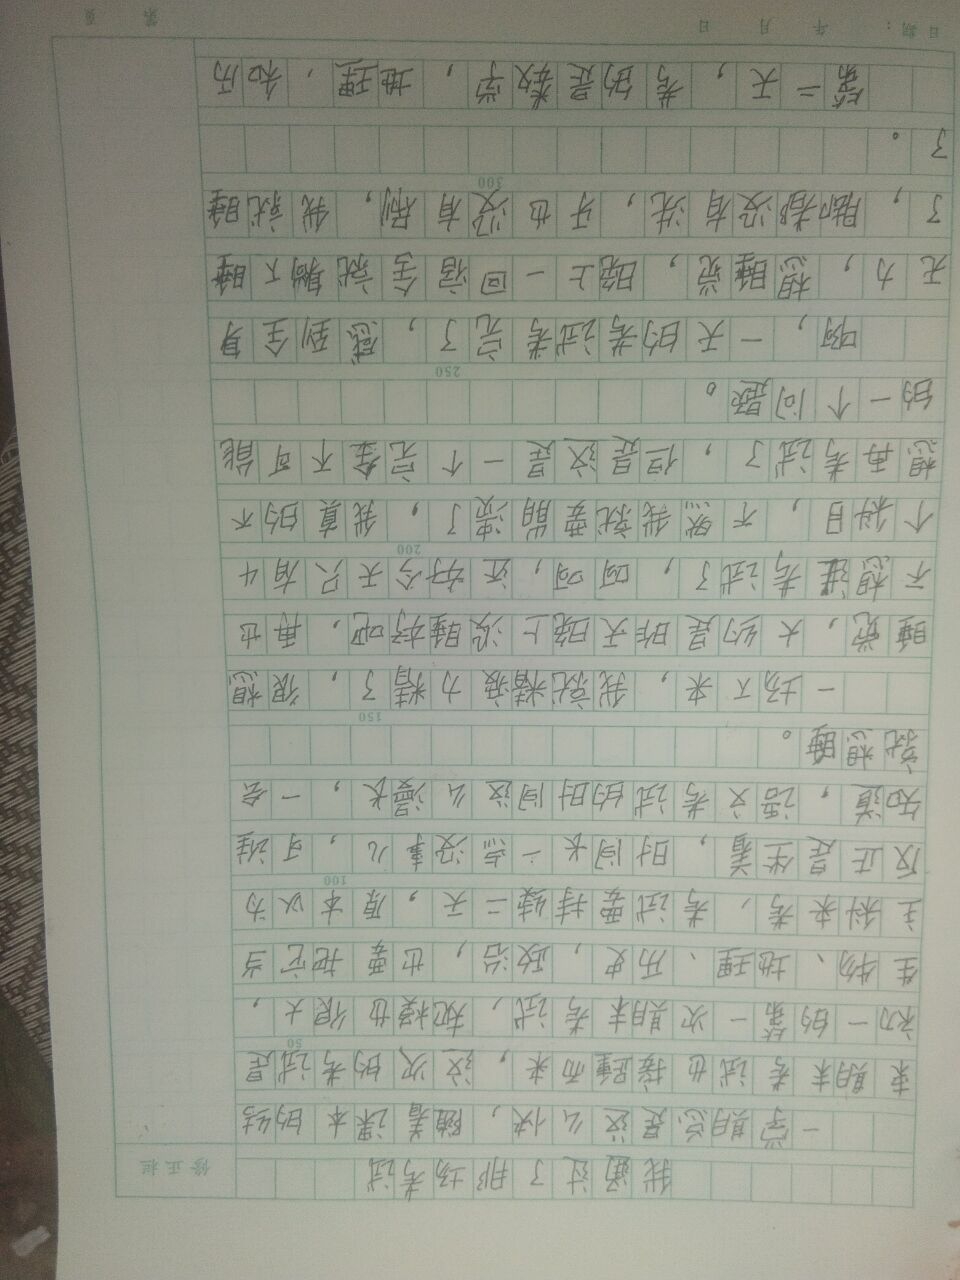 修正栏
我通过了那场考试
一学期总是这么快，随着课本的结
束期末考试也接踵而来，这次的考试是
50
初一的第一次期末考试，规模也很大，
生物、地理、历史，政治，也要把它当
主科来考，考试要持续二天，原本以为
100
反正是坐着，时间长一点没事儿，可谁
知道，语文考试的时间这么漫长，一会
就想睡。
150
一场下来，我就精疲力精了，很想
睡觉，大约是昨天晚上没睡好吧，再也
不想进考试了，呵呵，还好今天只有4
200
个科目，不然我就要崩溃了，我真的不
想再考试了，但是这是一个完全不可能
的一个问题。
250
啊，一天的考试考完了，感到全身
无力，想睡觉，晚上一回宿舍就躺下睡
了，脚都没有洗，牙也没有刷，我就睡
300
了。
第二天，考的是数学，地理，和历
日期： 年 月 日
第 页